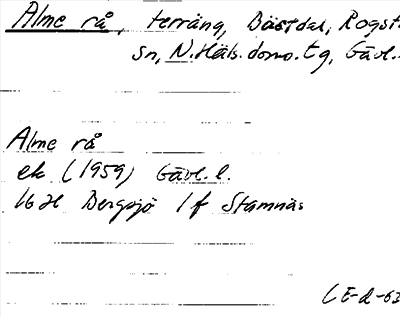 Alme rå, terräng, Bästdal, Rogst
sn, N. Häls. doms. tg, Gävl.
Alme rå
ek (1959) Gävl. l.
16H Bergsjö 1f Stamnäs
LE-d-63